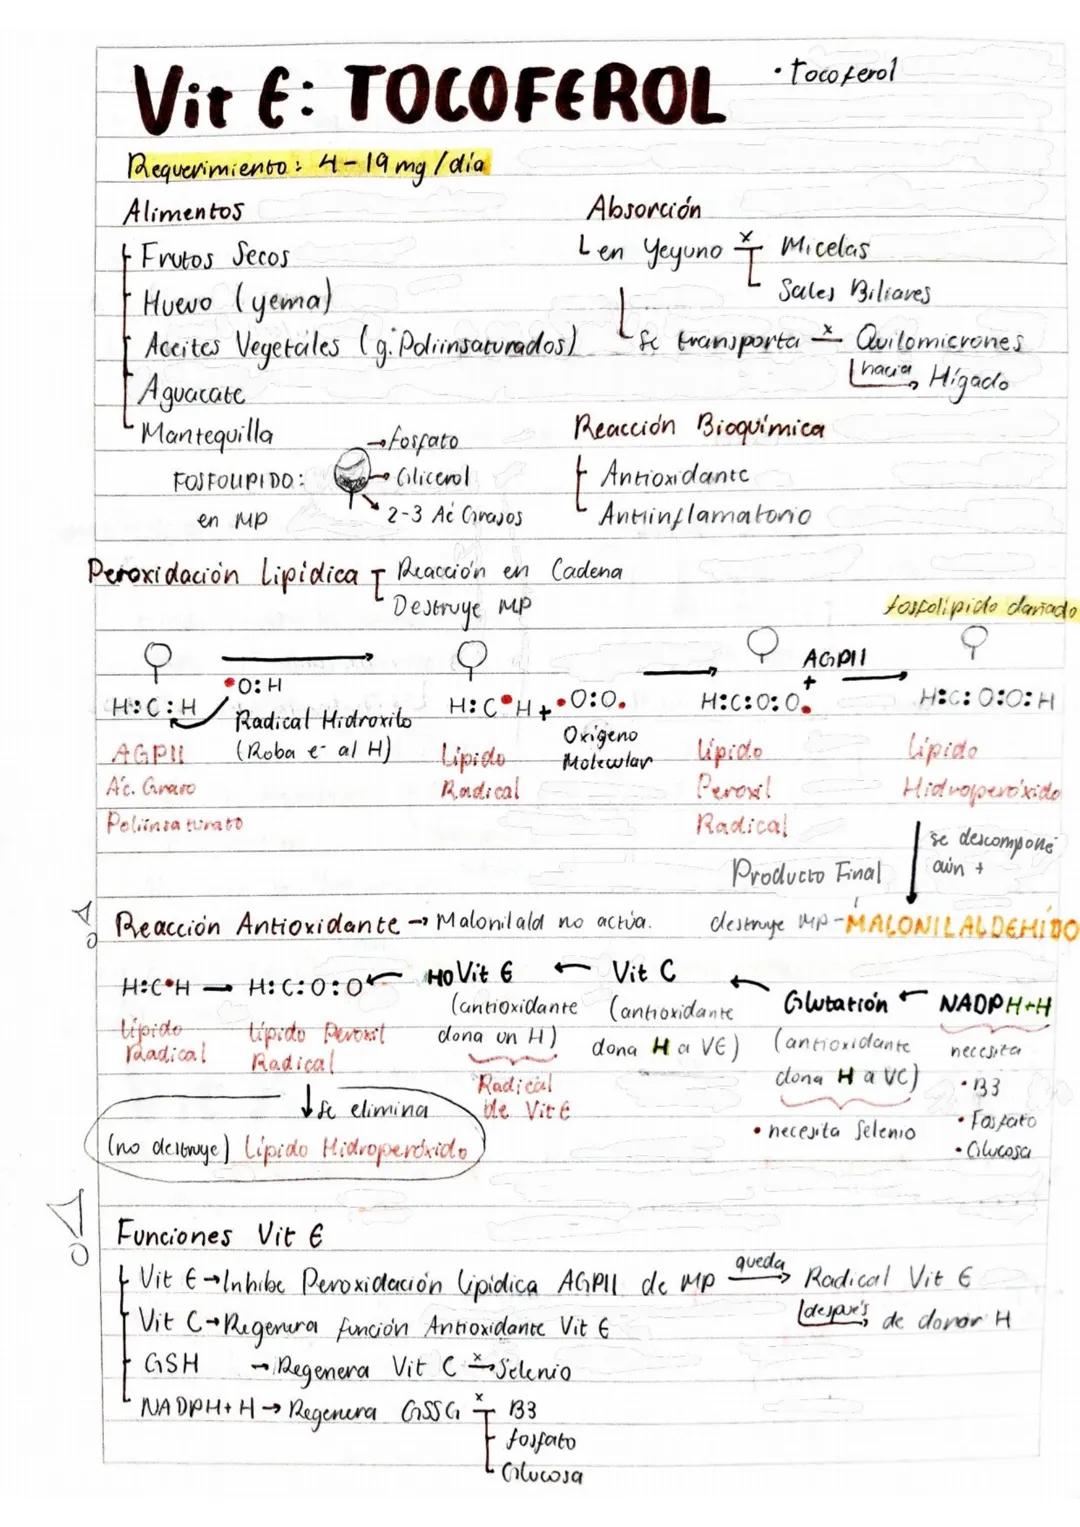 Vit E: TOCOFEROL
• Tocoferol
Requerimiento: 4-19 mg/día
Alimentos
Frutos Secos
Huevo (yema)
Aceites Vegetales (g. Poliinsaturados)
Aguacate
Mantequilla
Absorción
en Yeyuno x Micelas
Sales Biliares
Se transporta x Quilomicrones
hacia Hígado
FOSFOLIPIDO:
en MP
→ fosfato
→ Glicerol
2-3 Ác Grasos
Reacción Bioquímica
Antioxidante
Antiinflamatorio
Peroxidación Lipídica
Reacción en Cadena
Destruye MP
fosfolípido dañado
AGPII
+
•O:H
H:C:H
Radical Hidroxilo
(Roba e⁻ al H)
H:C•H + •O:O•
Oxígeno
Molecular
H:C:O:O•
H:C:O:O:H
AGPII
Ác. Graso
Poliinsaturato
Lípido
Radical
Lípido
Peroxil
Radical
Lípido
Hidroperóxido
se descompone
aún +
Producto Final
destruye MP - MALONILALDEHIDO
Reacción Antioxidante → Malonilald no actúa.
H:C•H → H:C:O:O ← HO Vit E ← Vit C ← Glutatión ← NADPH+H
Lípido
Radical
Lípido Peroxil
Radical
(antioxidante
dona un H)
Radical
de Vit E
(antioxidante
dona H a VE)
(antioxidante
dona H a VC)
• necesita Selenio
necesita
• B3
• Fosfato
• Glucosa
↓ Se elimina
(no destruye) Lípido Hidroperóxido
Funciones Vit E
Vit E → Inhibe Peroxidación Lipídica AGPII de MP queda → Radical Vit E
después de donar H
Vit C → Regenera función Antioxidante Vit E
GSH → Regenera Vit C x→ Selenio
NADPH+H → Regenera GSSG x B3
fosfato
Glucosa